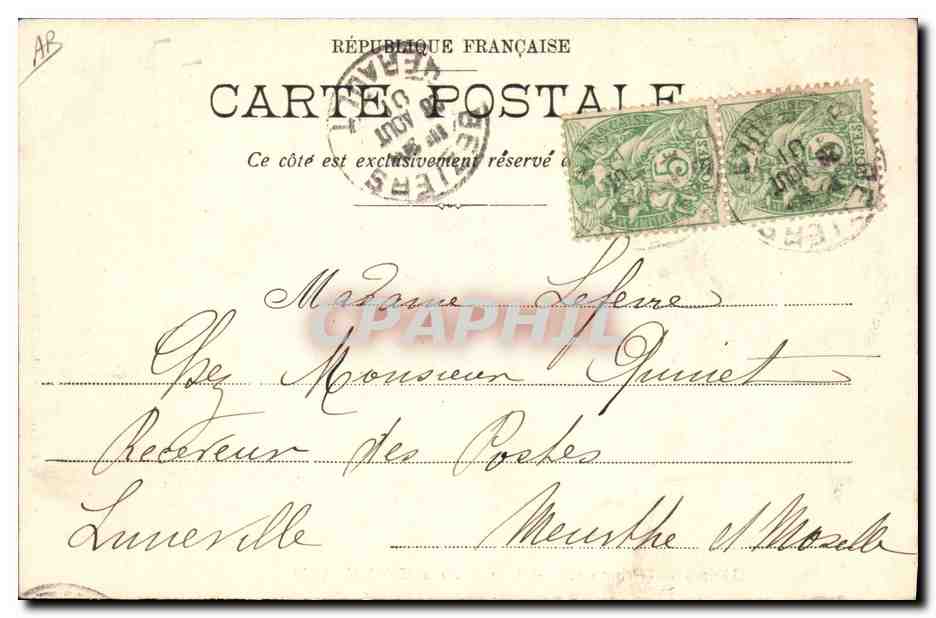 AB
RÉPUBLIQUE FRANÇAISE
CARTE POSTALE
Ce côté est exclusivement réservé
BEZIERS HERAULT
AOUT
5 POSTES
5 POSTES
AOUT
CPAPHIL
Madame Lefevre
Chez Monsieur Quinet
Receveur des Postes
Luneville Meurthe et Moselle